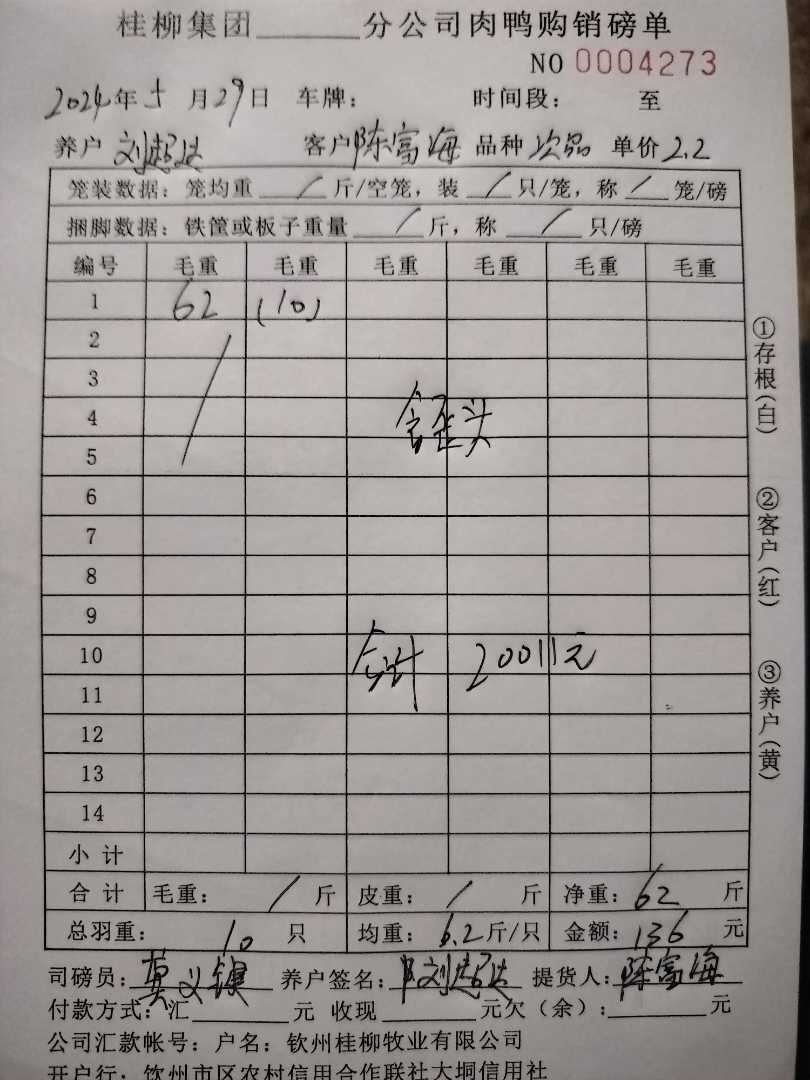 桂柳集团______分公司肉鸭购销磅单
NO 0004273
2024年 5 月 29日 车牌： 时间段： 至
养户 刘超达 客户 陈富海 品种 次品 单价 2.2
笼装数据：笼均重 / 斤/空笼，装 / 只/笼，称 / 笼/磅
捆脚数据：铁筐或板子重量 / 斤，称 / 只/磅
编号 毛重 毛重 毛重 毛重 毛重 毛重
1 62 (10)
2
3
4 头
5
6
7
8
9
10 合计 20011元
11
12
13
14
小计
合计 毛重： / 斤 皮重： / 斤 净重：62 斤
总羽重： 10 只 均重：6.2斤/只 金额：136 元
司磅员：莫义镇 养户签名：刘超达 提货人：陈富海
付款方式：汇______元 收现______元欠（余）：______元
公司汇款帐号：户名：钦州桂柳牧业有限公司
开户行：钦州市区农村信用合作联社大垌信用社
①存根（白）
②客户（红）
③养户（黄）